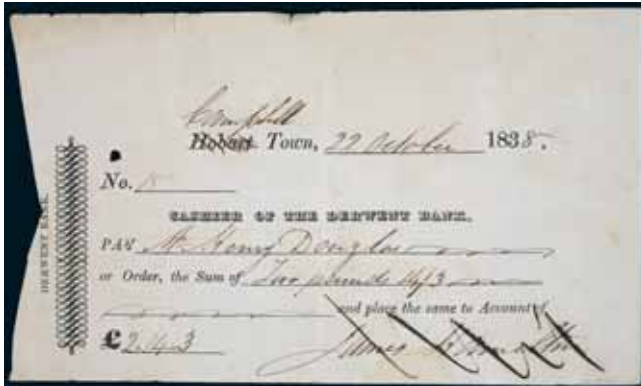 Campbell
Hobart Town, 22 October 1838.
No.
CASHIER OF THE DERWENT BANK.
PAY Mr Henry Douglas
or Order, the Sum of Two pounds 14/3
and place the same to Account of
£ 2.14.3
James
DERWENT BANK.